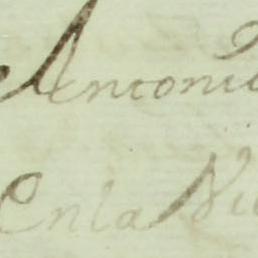 Antonio
En la Vi